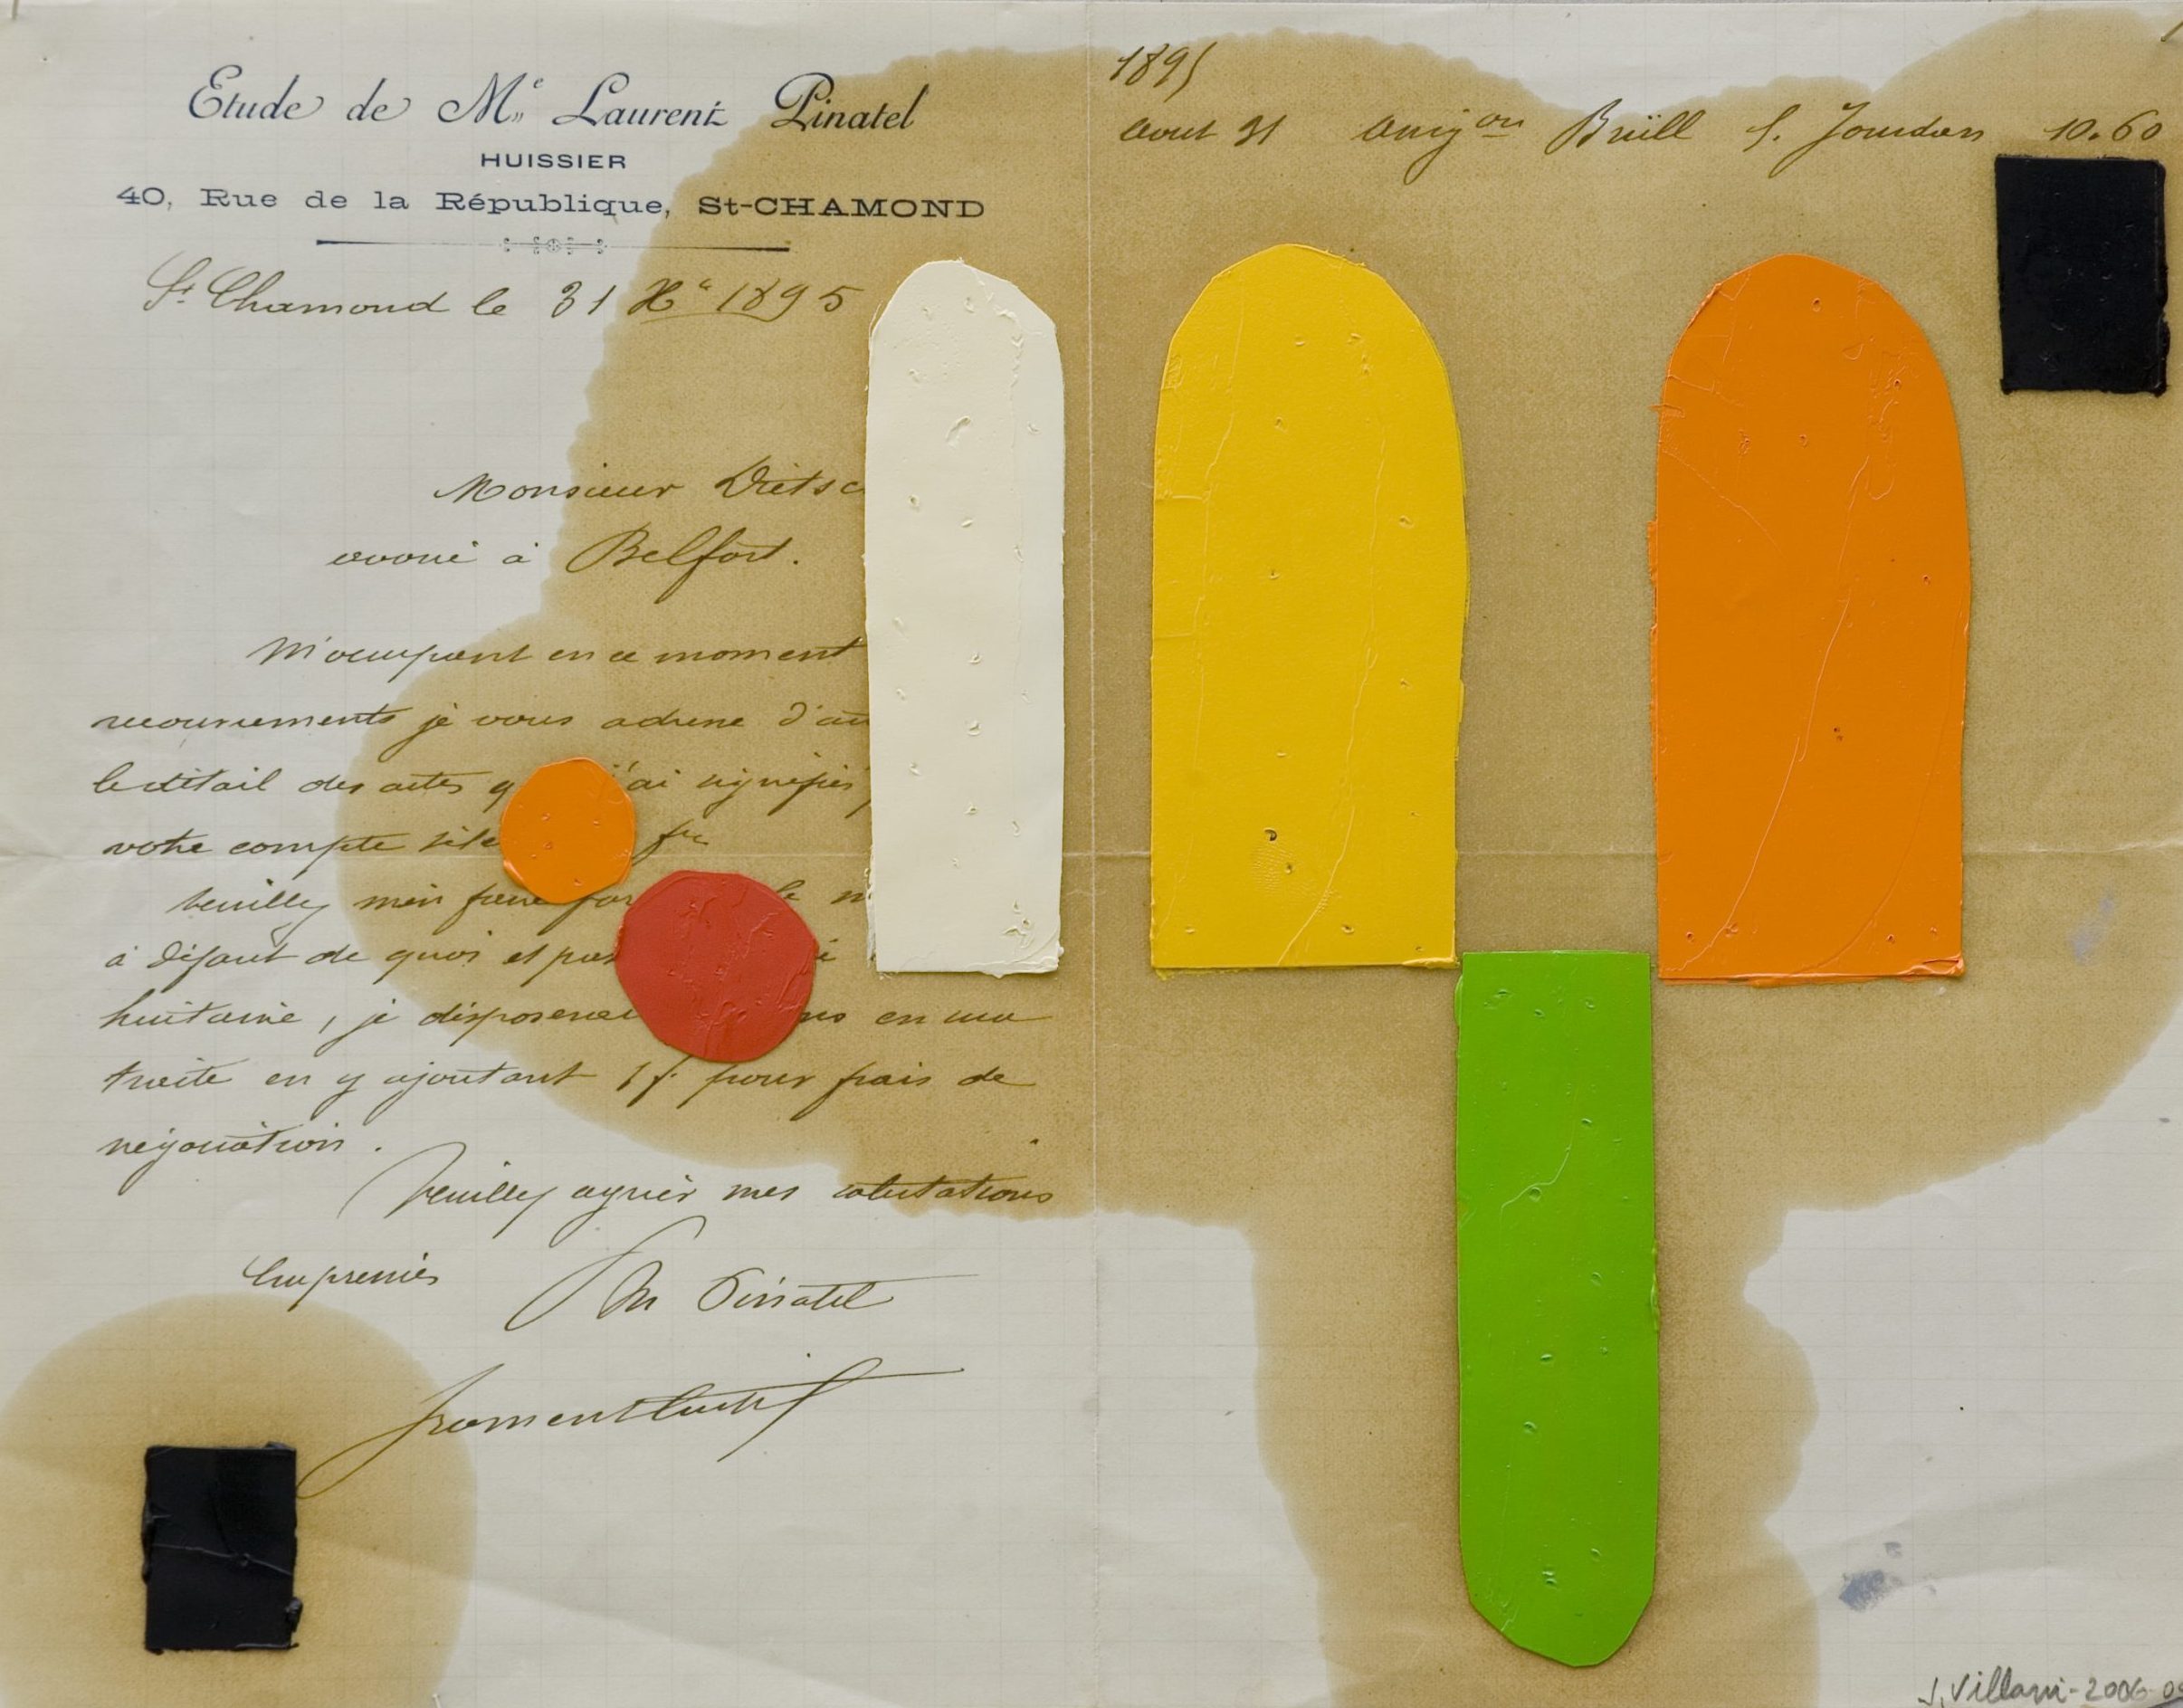 Etude de Me Laurent Pinatel
HUISSIER
40, Rue de la République, St-CHAMOND
St Chamond le 31 Xe 1895
Monsieur Dietsc
avoué à Belfort.
M'occupant en ce moment
recouvrements je vous adresse d'au
le détail des actes q j'ai signifiés
votre compte
Veuillez m'en faire
à défaut de quoi et pas
huitaine, je disposerai ns en une
traite en y ajoutant 1f. pour frais de
négociation.
Veuillez agréer mes salutations
Empressées
Pinatel
1895
aout 31 Brüll Jourdan 10.60
J. Villani - 2006